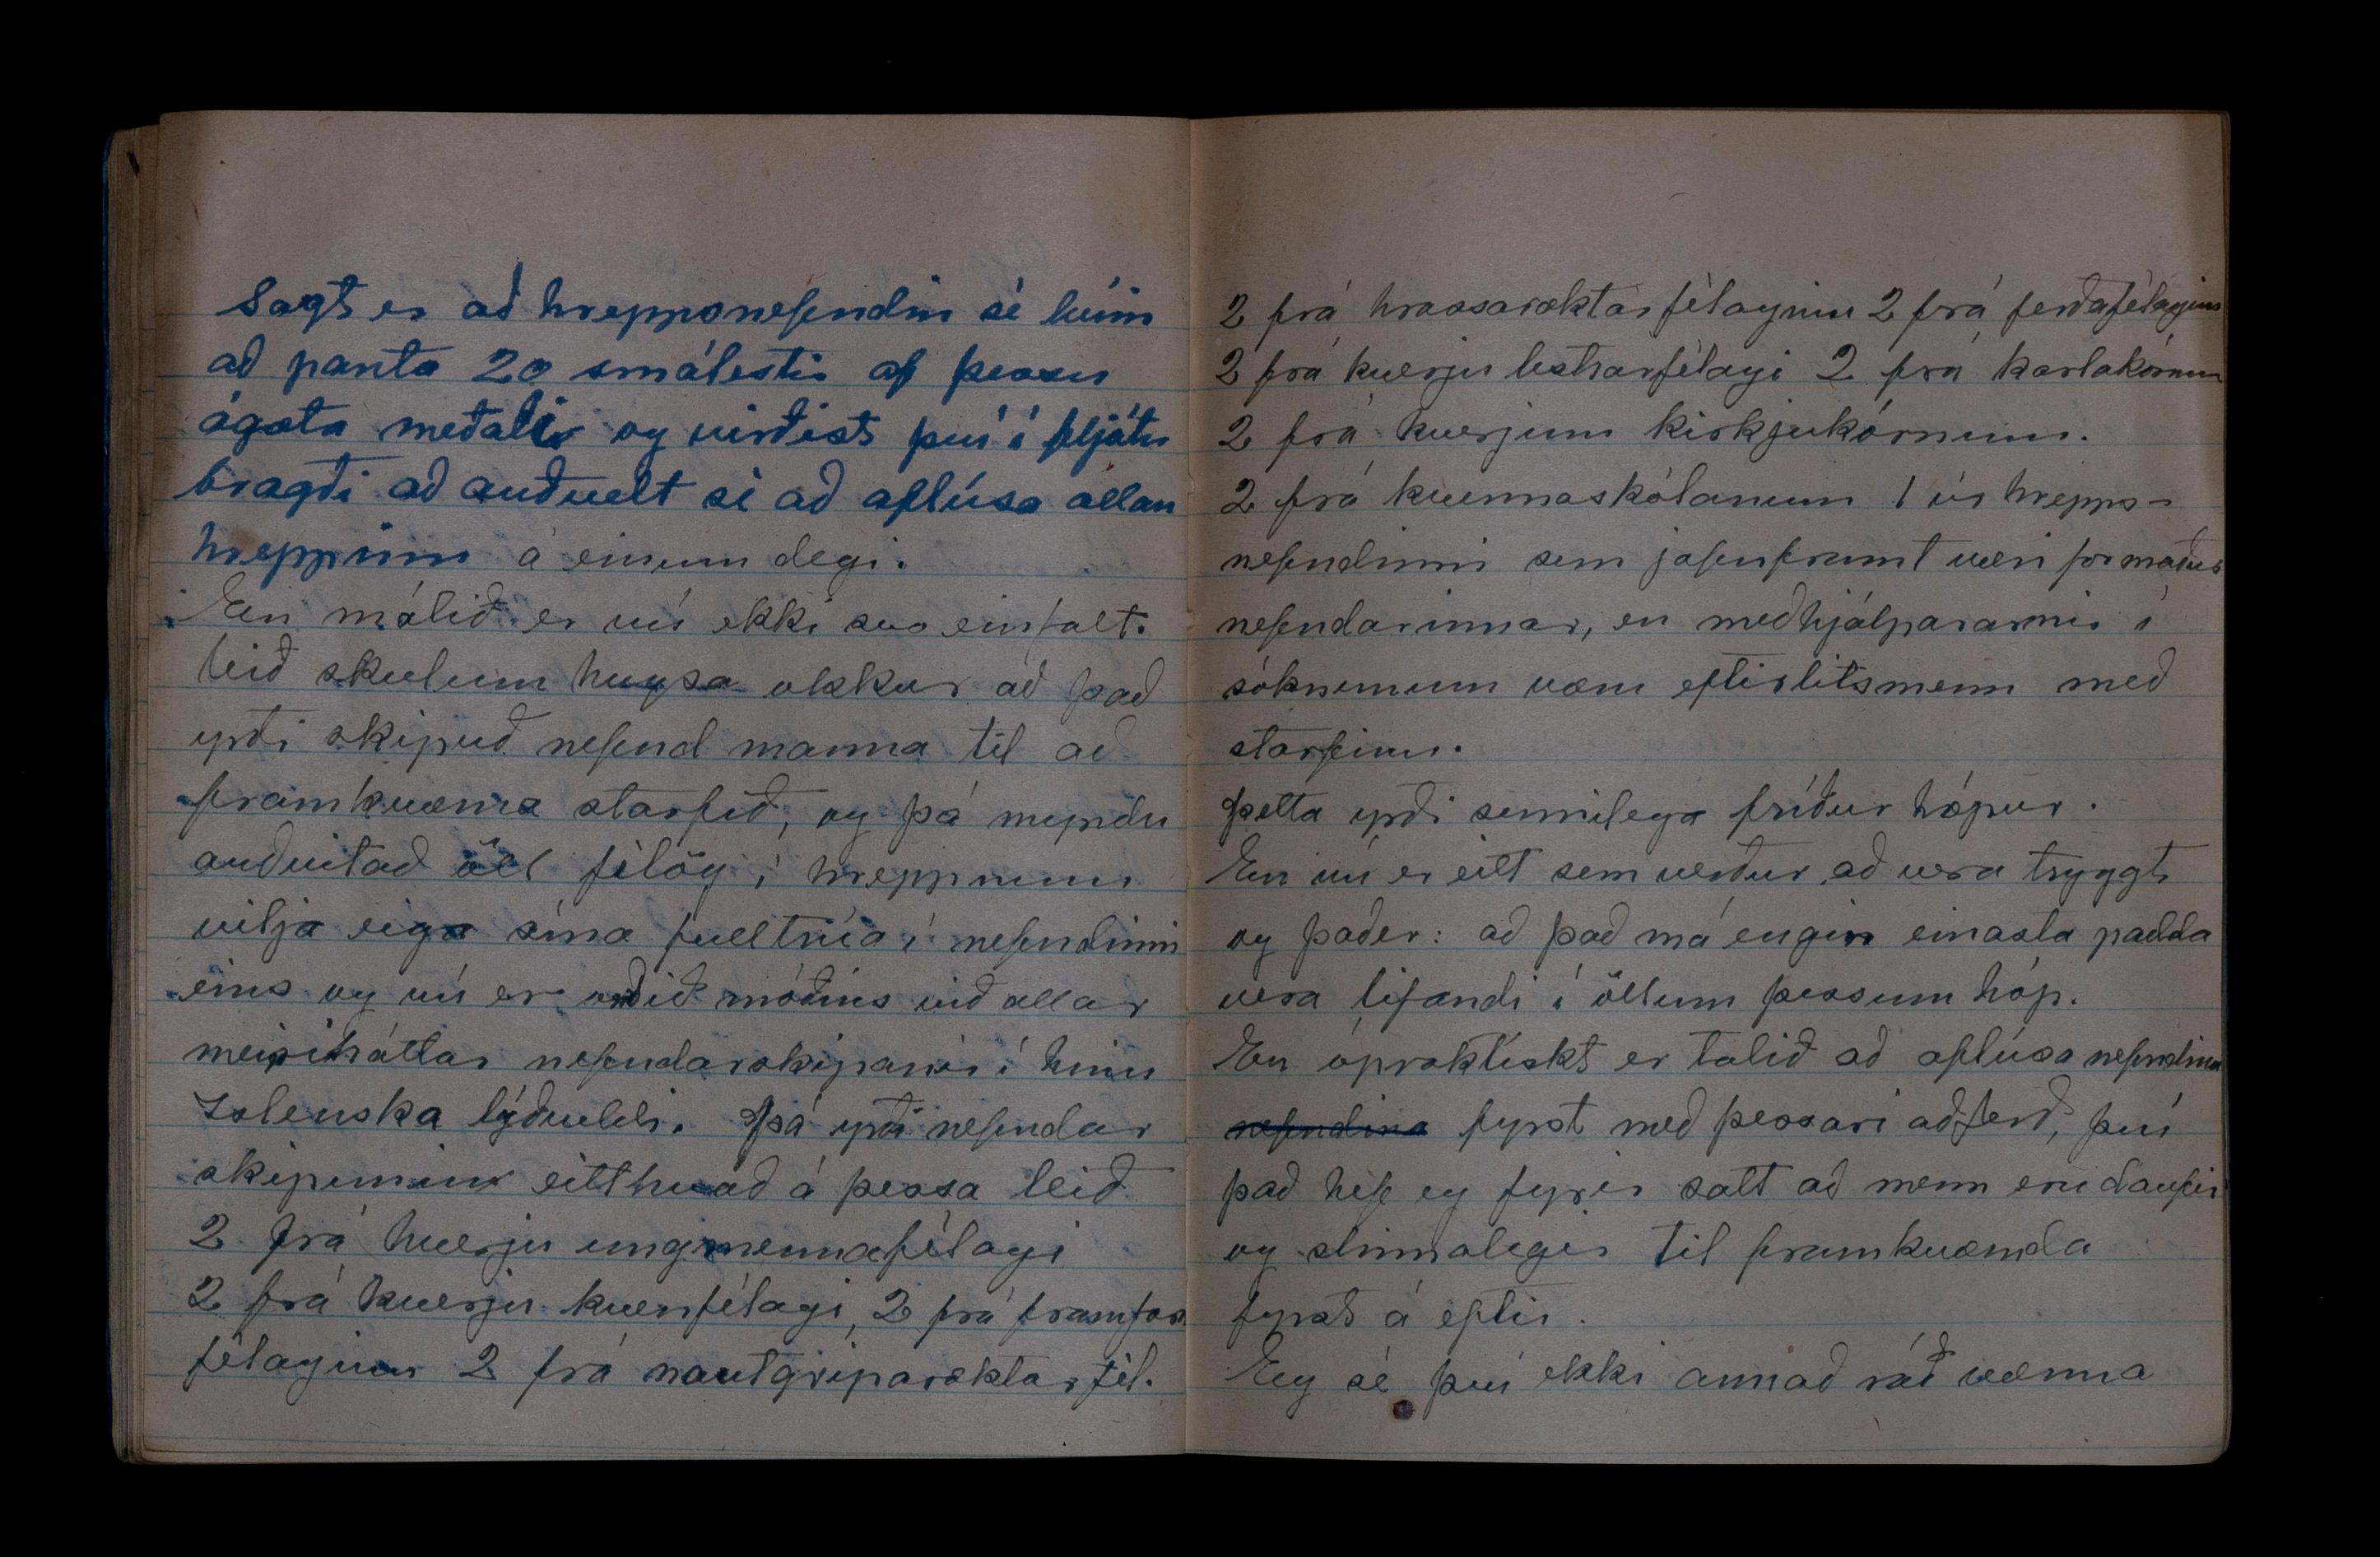 Sagt er að hreppsnefndin sé búin
að panta 20 smálestir af þessu
ágæta meðali og virðist því í fljótu
bragði að auðvelt sé að aflúsa allan
hreppinn á einum degi.
En málið er nú ekki svo einfalt.
Við skulum hugsa okkur að það
yrði skipuð nefnd manna til að
framkvæma starfið, og þá myndu
auðvitað öll félög í hreppnum
vilja eiga sína fulltrúa í nefndinni
eins og nú er orðið móðins við allar
meiriháttar nefndarskipanir í hinu
Islenska lýðveldi. Þá yrði nefndar
skipunin eitthvað á þessa leið
2 frá hverju ungmennafélagi
2 frá hverju kvenfélagi, 2 frá framfar
félaginu 2 frá nautgriparæktarfél.
2 frá hrossaræktarfélaginu 2 frá ferðafélaginu
2 frá hverju lestrarfélagi 2 frá karlakórnum
2 frá hverjum kirkjukórnum.
2 frá kvennaskólanum 1 úr hrepps-
nefndinni sem jafnframt væri formaður
nefndarinnar, en meðhjálpararnir í
sóknunum væru eftirlitsmenn með
starfinu.
Þetta yrði sennilega fríður hópur.
En nú er eitt sem verður að vera tryggt
og það er: að það má engin einasta padda
vera lifandi í öllum þessum hóp.
En ópraktískt er talið að aflúsa nefndina
nefndina fyrst með þessari aðferð, því
það hef eg fyrir satt að menn eru daufir
og slinnalegir til framkvæmda
fyrst á eftir.
Eg sé því ekki annað ráð vænna